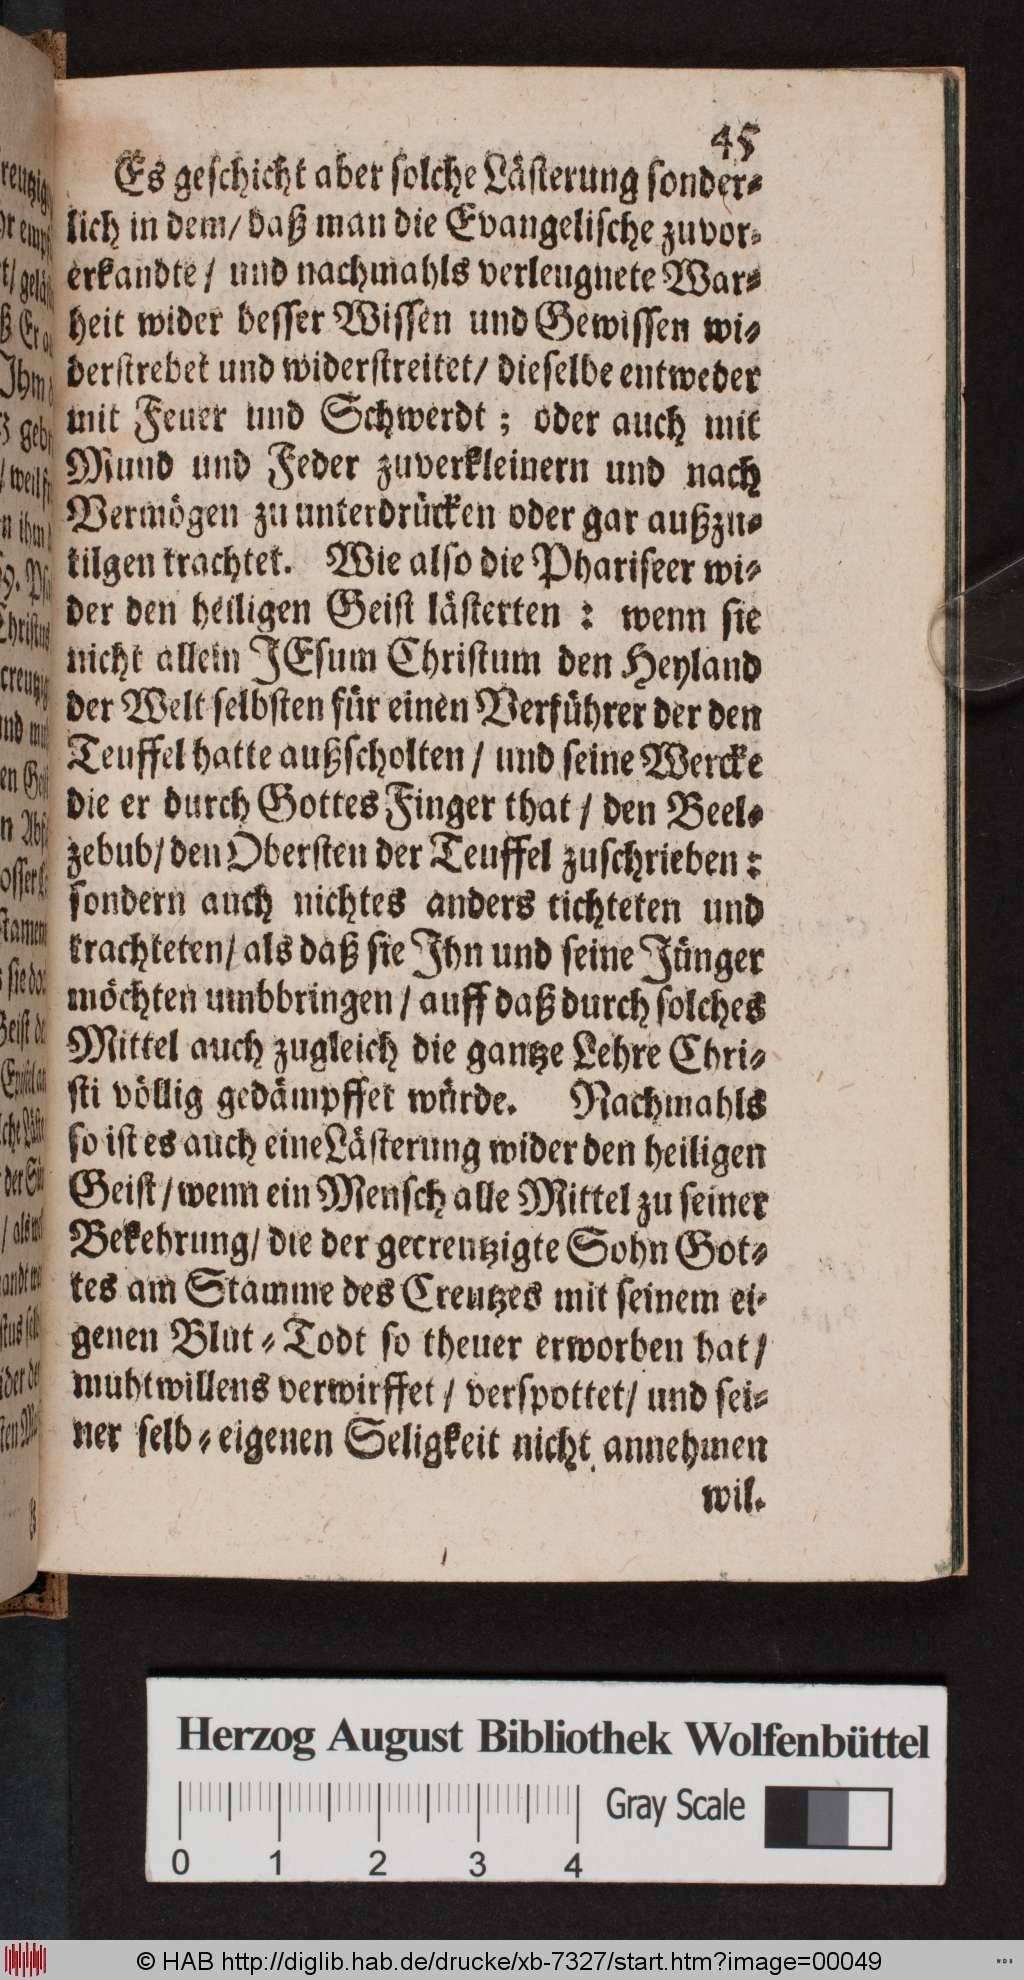 45
Es geschicht aber solche Lästerung sonder-
lich in dem/ daß man die Evangelische zuvor-
erkandte/ und nachmahls verleugnete War-
heit wider besser Wissen und Gewissen wi-
derstrebet und widerstreitet/ dieselbe entweder
mit Feuer und Schwerdt; oder auch mit
Mund und Feder zuverkleinern und nach
Vermögen zu unterdrücken oder gar außzu-
tilgen trachtet. Wie also die Phariseer wi-
der den heiligen Geist lästerten: wenn sie
nicht allein JEsum Christum den Heyland
der Welt selbsten für einen Verführer der den
Teuffel hatte außscholten/ und seine Wercke
die er durch Gottes Finger that/ den Beel-
zebub/ den Obersten der Teuffel zuschrieben:
sondern auch nichtes anders tichteten und
trachteten/ als daß sie Jhn und seine Jünger
möchten umbbringen/ auff daß durch solches
Mittel auch zugleich die gantze Lehre Chri-
sti völlig gedämpffet würde. Nachmahls
so ist es auch eine Lästerung wider den heiligen
Geist/ wenn ein Mensch alle Mittel zu seiner
Bekehrung/ die der gecreutzigte Sohn Got-
tes am Stamme des Creutzes mit seinem ei-
genen Blut-Todt so theuer erworben hat/
muhtwillens verwirffet/ verspottet/ und sei-
ner selb-eigenen Seligkeit nicht annehmen
wil.
Herzog August Bibliothek Wolfenbüttel
Gray Scale
0 1 2 3 4
© HAB http://diglib.hab.de/drucke/xb-7327/start.htm?image=00049